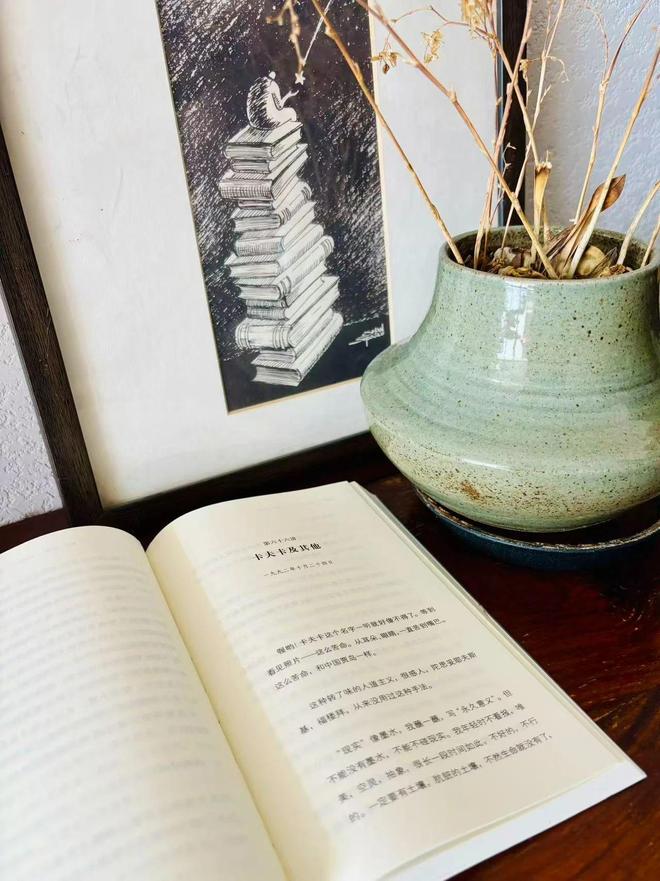 第六十六讲
卡夫卡及其他
一九九二年十月二十四日
喔哟！卡夫卡这个名字一听就好像不得了。等到
看见照片——这么苦命。从耳朵、眼睛，一直苦到嘴巴。
这么苦命，和中国贾岛一样。
这种转了味的人道主义，很感人，陀思妥耶夫斯
基，福楼拜，从来没用过这种手法。
“现实”像墨水，我蘸一蘸，写“永久意义”。但
不能没有墨水，不能不碰现实。我年轻时不看报，唯
美，空灵，抽象，很长一段时间如此。不好的，不行
的。一定要有土壤，肮脏的土壤，不然生命就没有了，